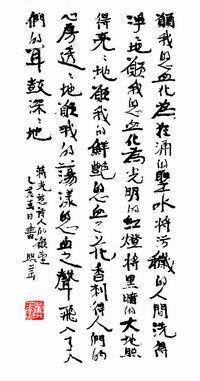 願我的心血化為狂涌的聖水將污穢的人間洗得
淨々地願我的心血化為光明的紅燈將黑暗的大地照
得亮々地願我的鮮艷的心血之花香刺得人們的
心房透々地願我的蕩漾的心血之聲飛入了人
們的耳鼓深々地
蔣光慈詩我的
乙亥春日書